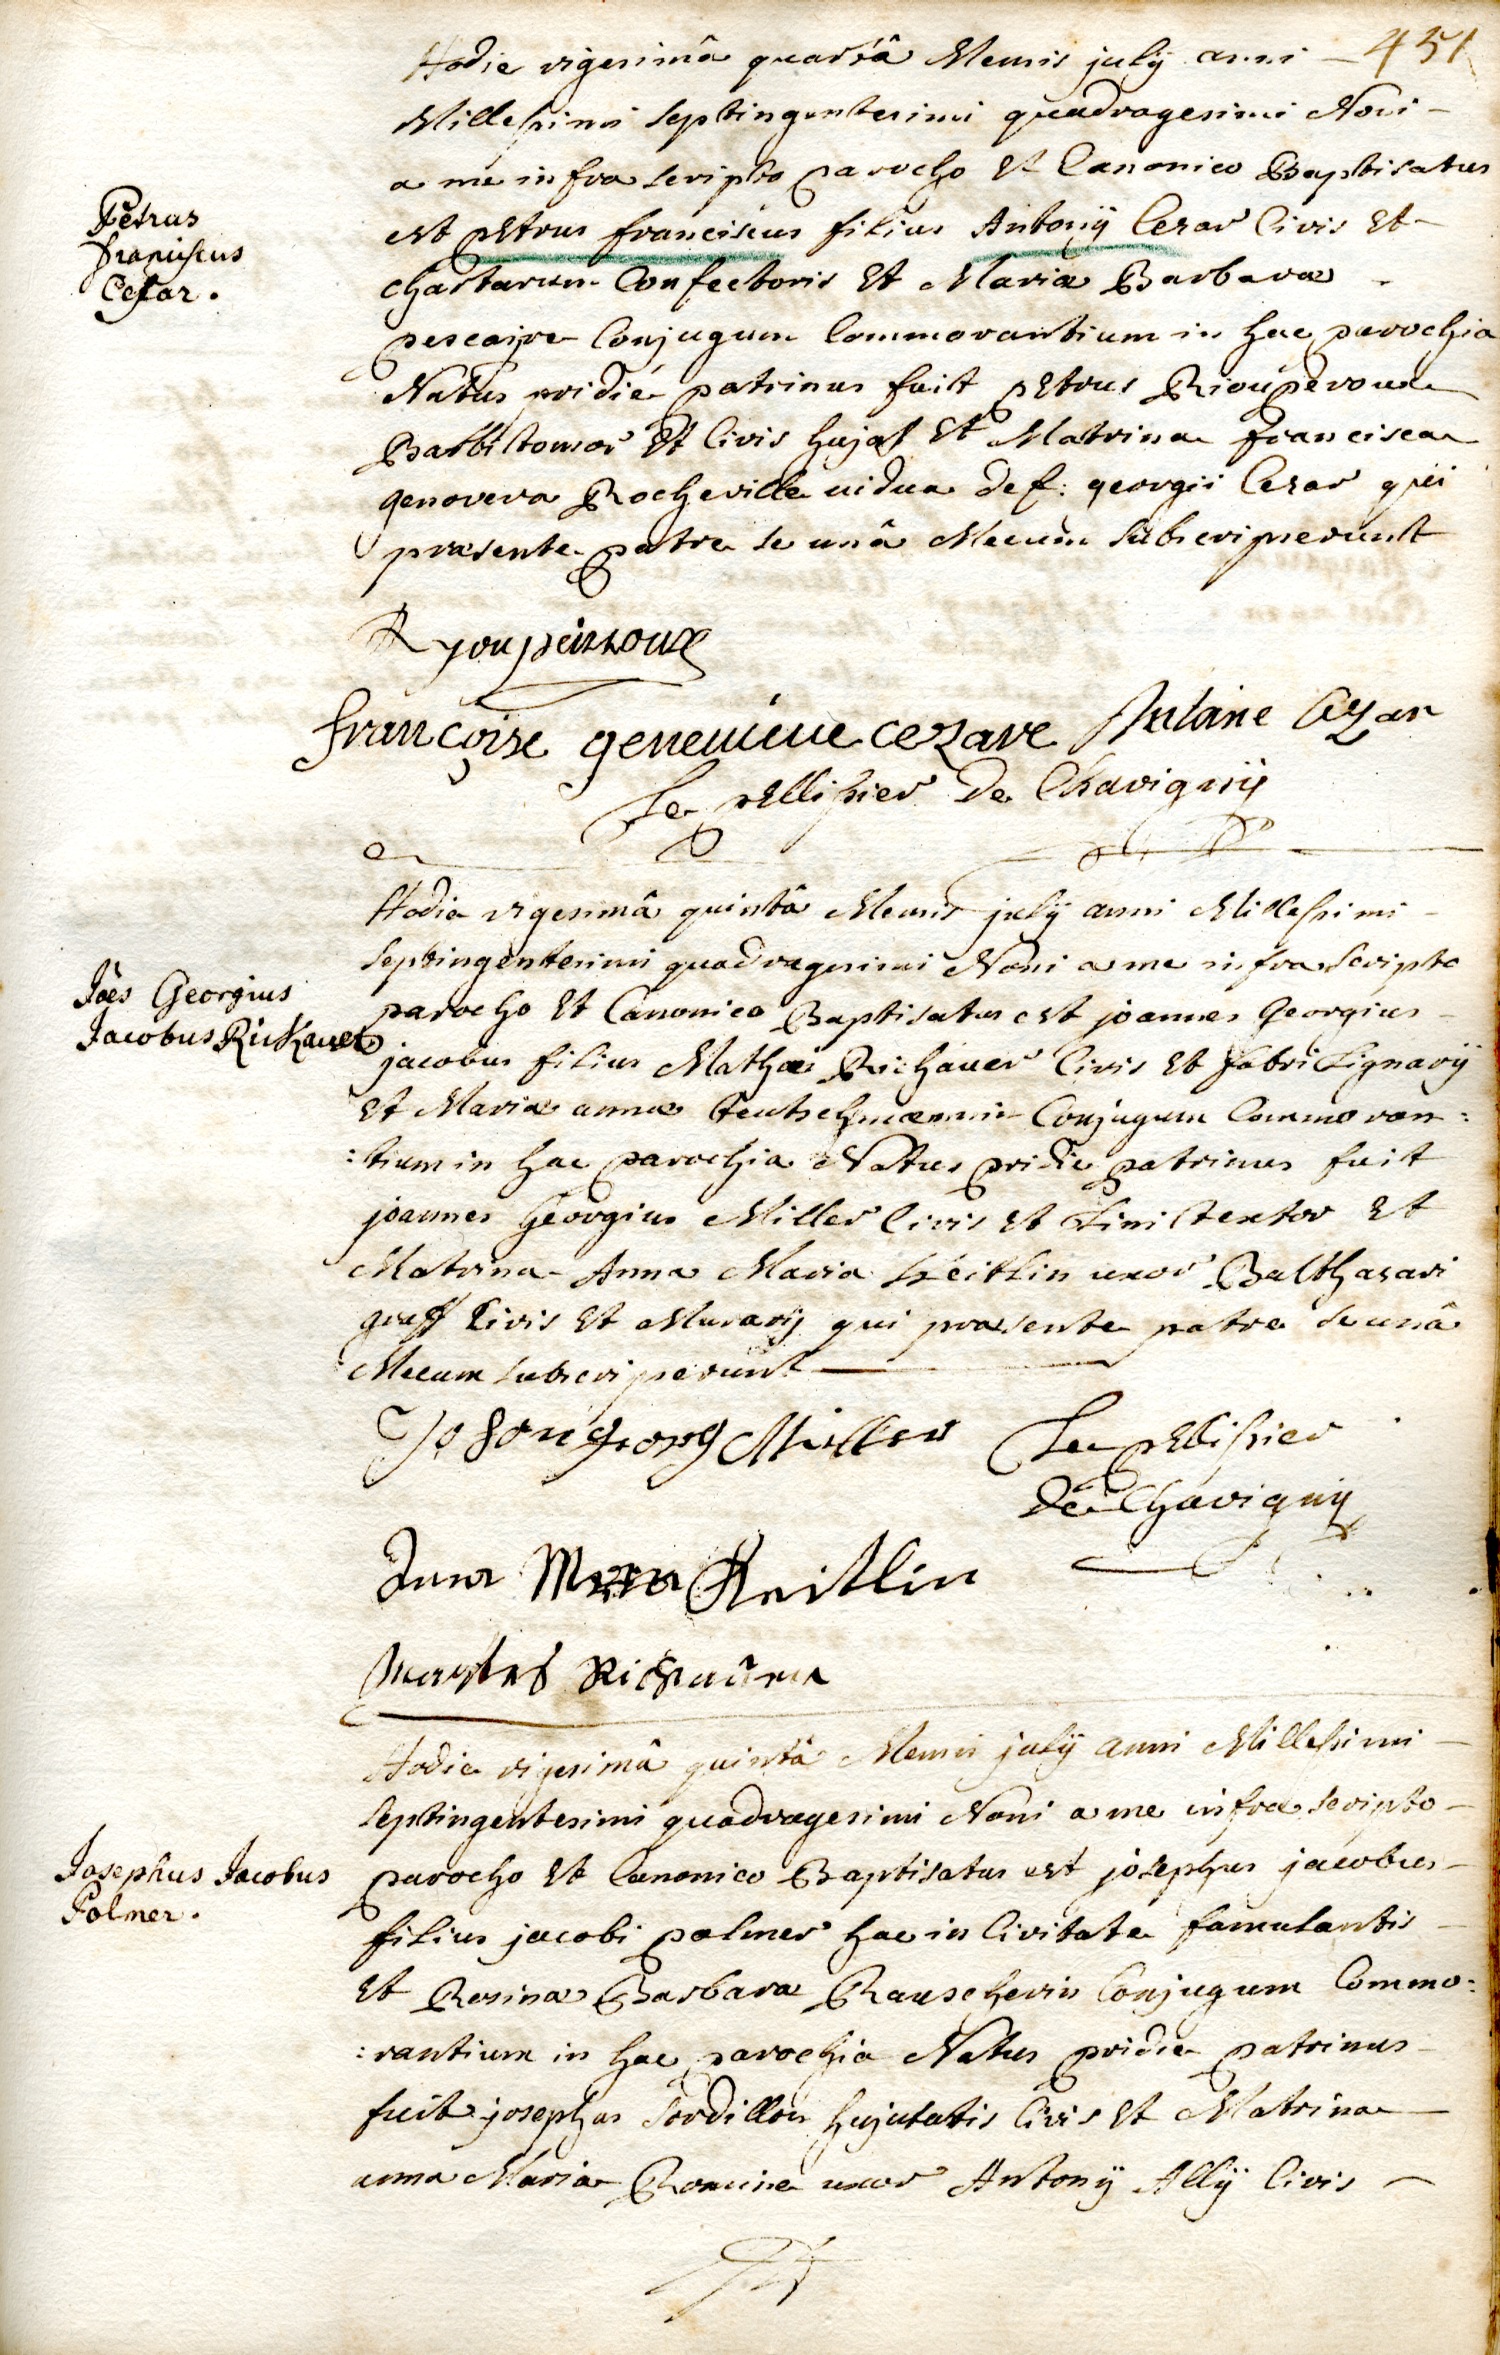 451
Hodie vigesimâ quartâ Mensis july anni
Millesimi septingentesimi quadragesimi Noni
a me infra scripto parocho Et Canonico Baptisatus
Petrus
franciscus
Cesar.
est pEtrus franciscus filius Antonÿ Cezar Civis Et
chartarum Confectoris Et Mariæ Barbaræ
pescaire Conjugum Commorantium in hac parochia
Natus pridie patrinus fuit pEtrus Riouperoux
Barbitonsor Et Civis hujas Et Matrina francisca
genoveva Rocheville vidua def: georgii Cezar qui
præsente patre se unâ Mecum subscripserunt
Ryouperroux
françoise genevieve cezare Antoine Cezar
Le pEllissier De Chavignÿ
Hodie vigesimâ quintâ Mensis julÿ anni Millesimi
septingentesimi quadragesimi Noni a me infra scripto
Jões Georgius
Jacobus Richauer
parocho Et Canonico Baptisatus est joannes Georgius
jacobus filius Mathæi Richauer Civis Et fabri Lignarÿ
Et Mariæ annæ teutschmannin Conjugum Commoran:
:tium in hac parochia Natus pridie patrinus fuit
joannes Georgius Miller Civis Et Linitextor Et
Matrina Anna Maria Keitlin uxor Balthasari
graff Civis Et Murarÿ qui præsente patre se unâ
Mecum subscripserunt
Johan georg Miller Le pEllissier
De Chavigny
Anna Maria Keitlin
Hodie vigesimâ quintâ Mensis julÿ anni Millesimi
septingentesimi quadragesimi Noni a me infra scripto
Josephus Jacobus
Polmer.
parocho Et Canonico Baptisatus est josephus jacobus
filius jacobi polmer hac in Civitate famulantis
Et Rosinæ Barbaræ Rauscherin Conjugum Commo:
:rantium in hac parochia Natus pridie patrinus
fuit josephus Sordillon hujatis Civis Et Matrina
anna Maria uxor Antonÿ Allÿ Civis